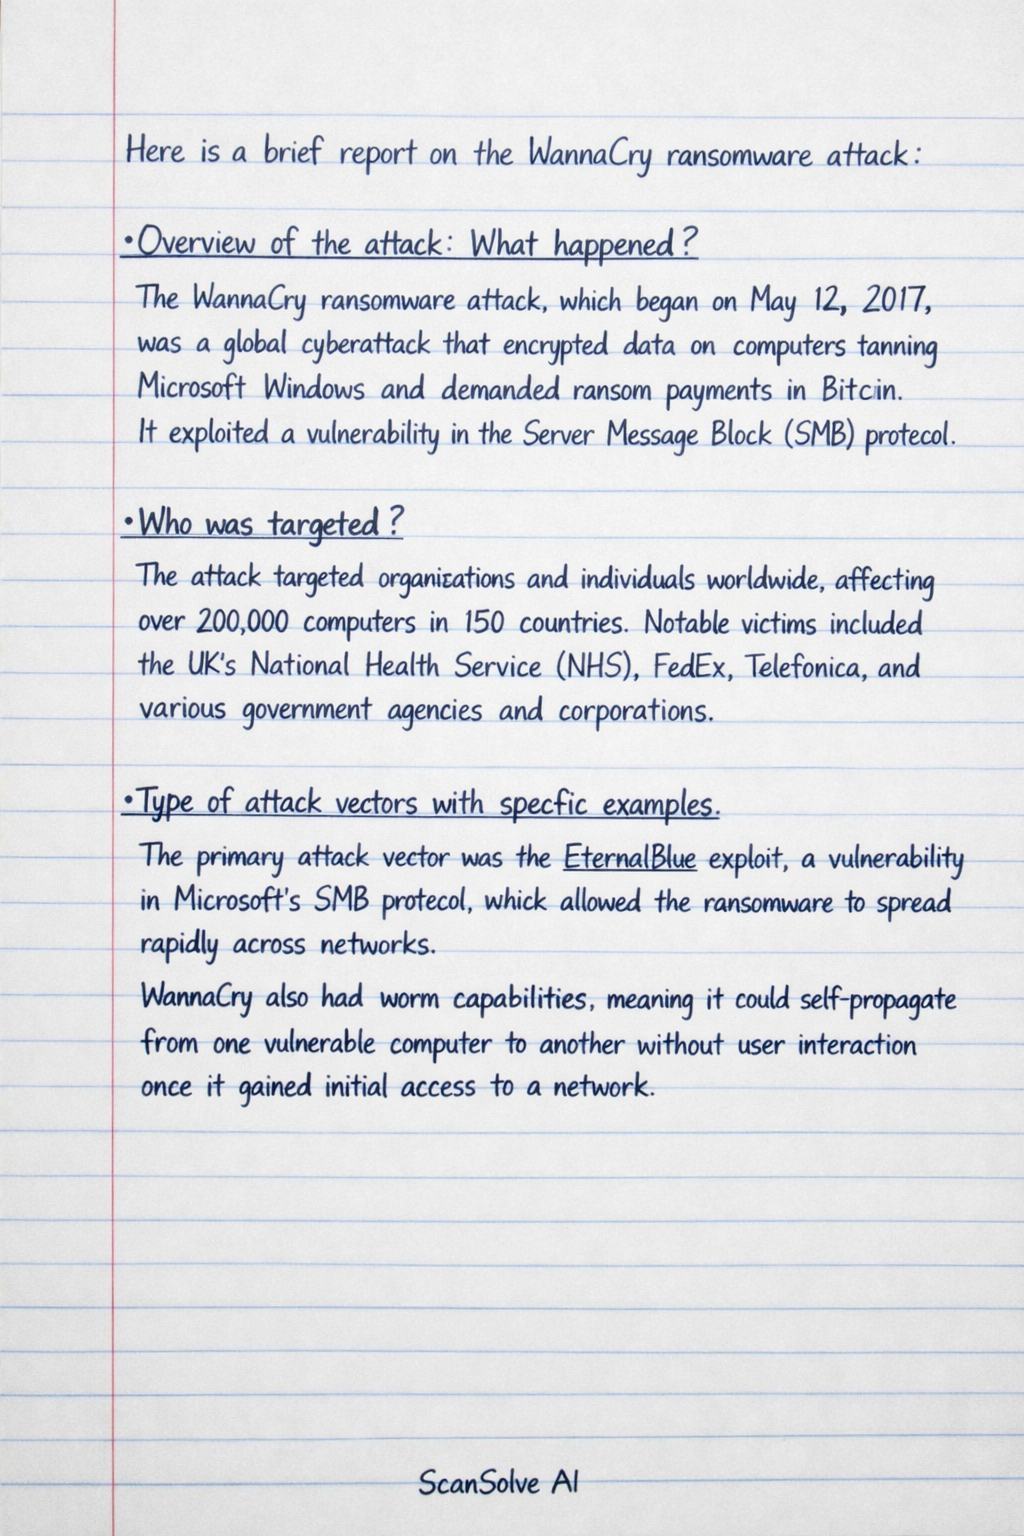 Here is a brief report on the WannaCry ransomware attack:
•Overview of the attack: What happened?
The WannaCry ransomware attack, which began on May 12, 2017,
was a global cyberattack that encrypted data on computers tanning
Microsoft Windows and demanded ransom payments in Bitcin.
It exploited a vulnerability in the Server Message Block (SMB) protecol.
•Who was targeted?
The attack targeted organizations and individuals worldwide, affecting
over 200,000 computers in 150 countries. Notable victims included
the UK's National Health Service (NHS), FedEx, Telefonica, and
various government agencies and corporations.
•Type of attack vectors with specfic examples.
The primary attack vector was the EternalBlue exploit, a vulnerability
in Microsoft's SMB protecol, whick allowed the ransomware to spread
rapidly across networks.
WannaCry also had worm capabilities, meaning it could self-propagate
from one vulnerable computer to another without user interaction
once it gained initial access to a network.
ScanSolve AI